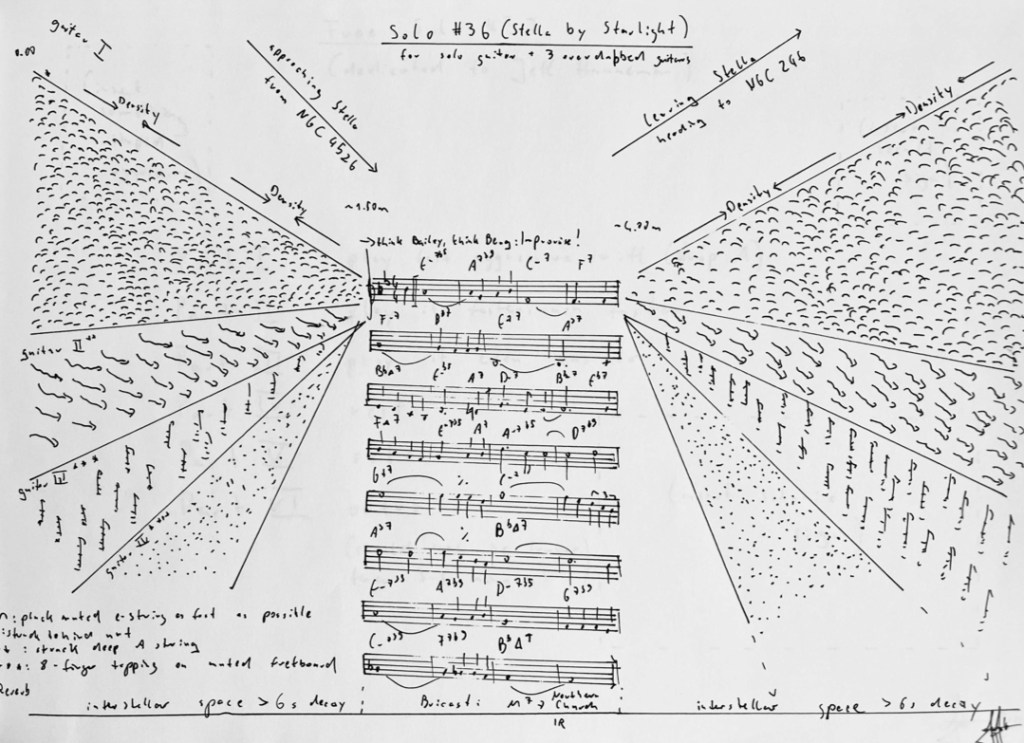 Solo #36 (Stella by Starlight)
for solo guitar + 3 overdubbed guitars
guitar I
0.00
*
Density
approaching Stella
from NGC 4526
Leaving Stella
heading to NGC 246
Density
Density
Density
~1.50m
→ think Bailey, think Berg: Improvise!
E-7b5 A7b9 C-7 F7
F-7 Bb7 EbΔ7 Ab7
BbΔ7 A7 D-7 Bb-7 Eb7
FΔ7 E-7b5 A7 A-7b5 D7b9
G+7 % C-7
Ab7 % BbΔ7
E-7b5 A7b9 D-7b5 G7b9
C-7b5 F7b9 BbΔ7
guitar II **
guitar III ***
guitar IV ****
: pluck muted e-string as fast as possible
: struck behind nut
: struck deep A string
: 8-finger tapping on muted fretboard
Reverb
interstellar space > 6s decay
Bricasti: M7 → Northern Church
IR
interstellar space > 6s decay